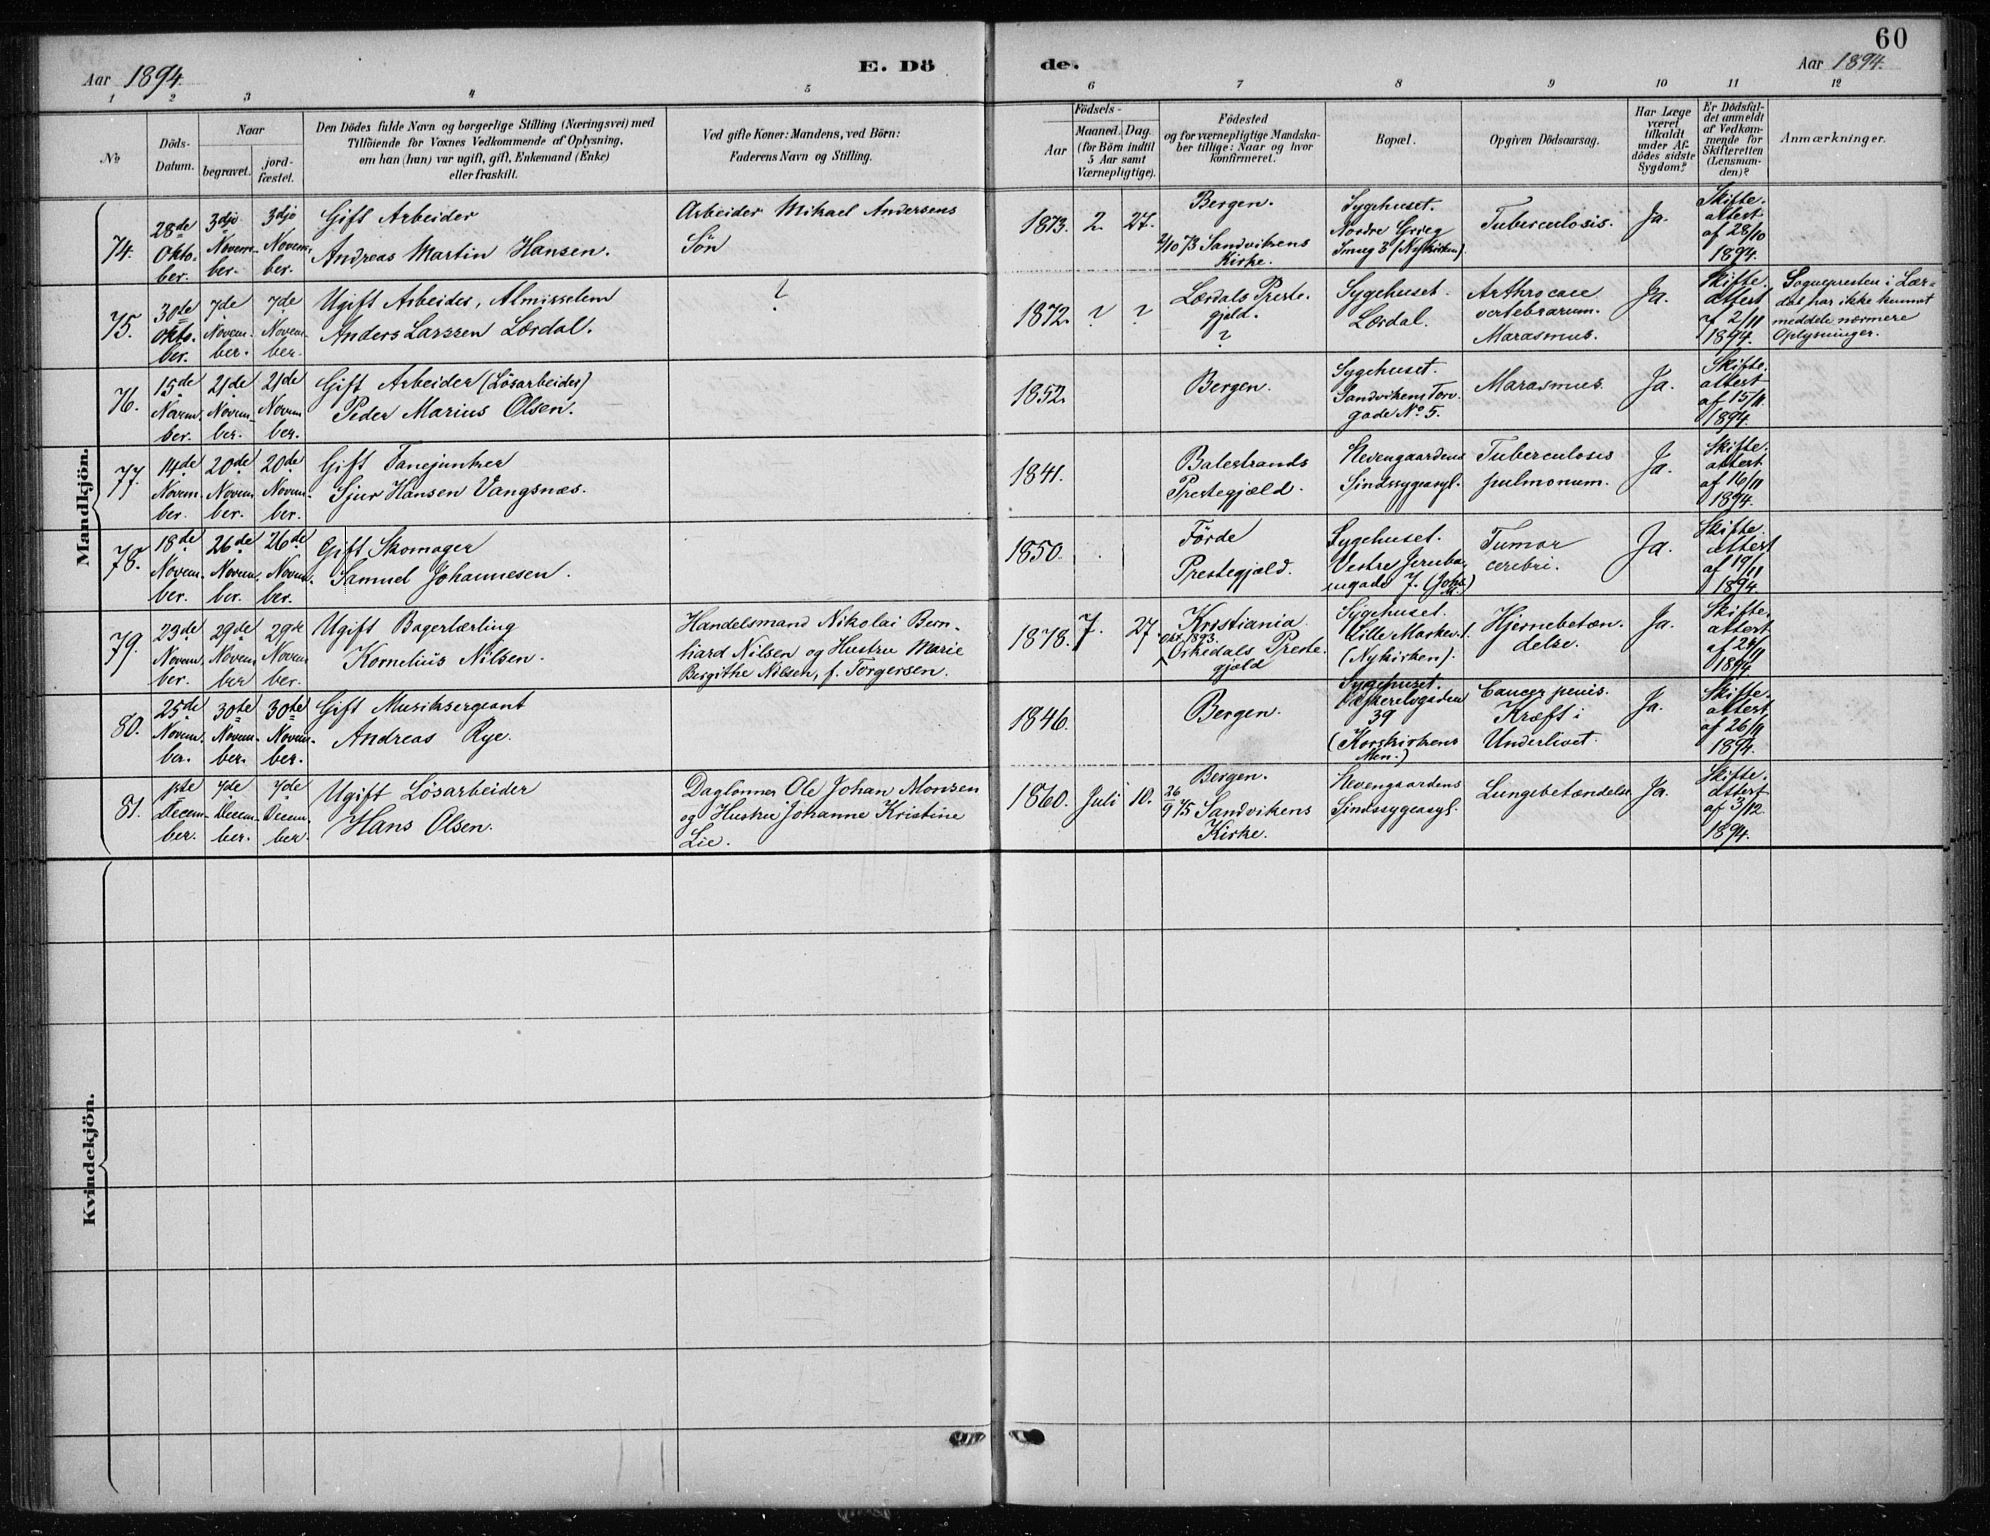 60
Aar 1894.
E. Dö
de.
Aar 1894.
1 2 3 4 5 6 7 8 9 10 11 12
№
Döds-
Datum.
Naar
begravet.
jord-
fæstet.
Den Dödes fulde Navn og borgerlige Stilling (Næringsvei) med
Tilföiende for Voxnes Vedkommende af Oplysning,
om han (hun) var ugift, gift, Enkemand (Enke)
eller fraskilt.
Ved gifte Koner: Mandens, ved Börn:
Faderens Navn og Stilling.
Födsels-
Aar
Maaned. Dag.
(for Börn indtil
5 Aar samt
Værnepligtige).
Födested
og for værnepligtige Mandska-
ber tillige: Naar og hvor
konfirmeret.
Bopæl.
Opgiven Dödsaarsag.
Har Læge
været
tilkaldt
under Af-
dödes sidste
Sygdom?
Er Dödsfal-
det anmeldt
af Vedkom-
mende for
Skifteretten
(Lensman-
den)?
Anmærkninger.
Mandkjön.
74.
28de
Okto-
ber.
3dje
Novem-
ber.
3dje
Novem-
ber.
Gift Arbeider
Andreas Martin Hansen.
Arbeider Mikael Andersens
Sön
1873. 2. 27.
Bergen.
2/10 73 Sandvikens
Kirke.
Sygehuset.
Nordre Grieg
Smug 3 (Nykirken).
Tuberculosis.
Ja.
Skifte-
attest
af 28/10
1894.
75.
30te
Okto-
ber.
7de
Novem-
ber.
7de
Novem-
ber.
Ugift Arbeider, Almisselem
Anders Larssen Lærdal.
?
1872. ? ?
Lærdals Preste-
gjeld.
?
Sygehuset.
Lærdal.
Arthrocace
vertebrarum.
Marasmus.
Ja.
Skifte-
attest
af 2/11
1894.
Sognepresten i Lær-
dal har ikke kunnet
meddele nærmere
Oplysninger.
76.
15de
Novem-
ber.
21de
Novem-
ber.
21de
Novem-
ber.
Gift Arbeider (Lösarbeider)
Peder Marius Olsen.
1852.
Bergen.
Sygehuset.
Sandvikens Torv-
gade No 5.
Marasmus.
Ja.
Skifte-
attest
af 15/11
1894.
77.
14de
Novem-
ber.
20de
Novem-
ber.
20de
Novem-
ber.
Gift Fanejunker
Sjur Hansen Vangsnæs.
1841.
Balestrands
Prestegjæld.
Nevengaardens
Sindssygeasyl.
Tuberculosis
pulmonum.
Ja.
Skifte-
attest
af 16/11
1894.
78.
18de
Novem-
ber.
26de
Novem-
ber.
26de
Novem-
ber.
Gift Skomager
Samuel Johannesen.
1850.
Förde
Prestegjæld.
Sygehuset.
Vestre Jernba-
negade 7. (Joh.
M.)
Tumor
cerebri.
Ja.
Skifte-
attest
af 19/11
1894.
79.
23de
Novem-
ber.
29de
Novem-
ber
29de
Novem-
ber.
Ugift Bagerlærling
Kornelius Nilsen.
Handelsmand Nikolai Bern-
hard Nilsen og Hustru Marie
Bergithe Nilsen, f. Torgersen.
1878. 7. 27
Kristiania
Okt. 1893.
Orkedals Preste-
gjæld
Sygehuset.
Lille Markev. 1.
(Nykirken).
Hjernebetæn-
delse.
Ja.
Skifte-
attest
af 24/11
1894.
80.
25de
Novem-
ber.
30te
Novem-
ber.
30te
Novem-
ber.
Gift Musiksergeant
Andreas Rye.
1846.
Bergen.
Sygehuset.
39
(Korskirkens
Men.)
Cancer penis.
Kræft i
Underlivet.
Ja.
Skifte-
attest
af 26/11
1894.
81.
1ste
Decem-
ber.
7de
Decem-
ber.
7de
Decem-
ber.
Ugift Lösarbeider
Hans Olsen.
Daglönner Ole Johan Monsen
og Hustru Johanne Kristine
Lie.
1860. Juli 10.
Bergen.
26/9 75 Sandvikens
Kirke.
Nevengaardens
Sindssygeasyl.
Lungebetændelse
Ja.
Skifte-
attest
af 3/12
1894.
Kvindekjön.